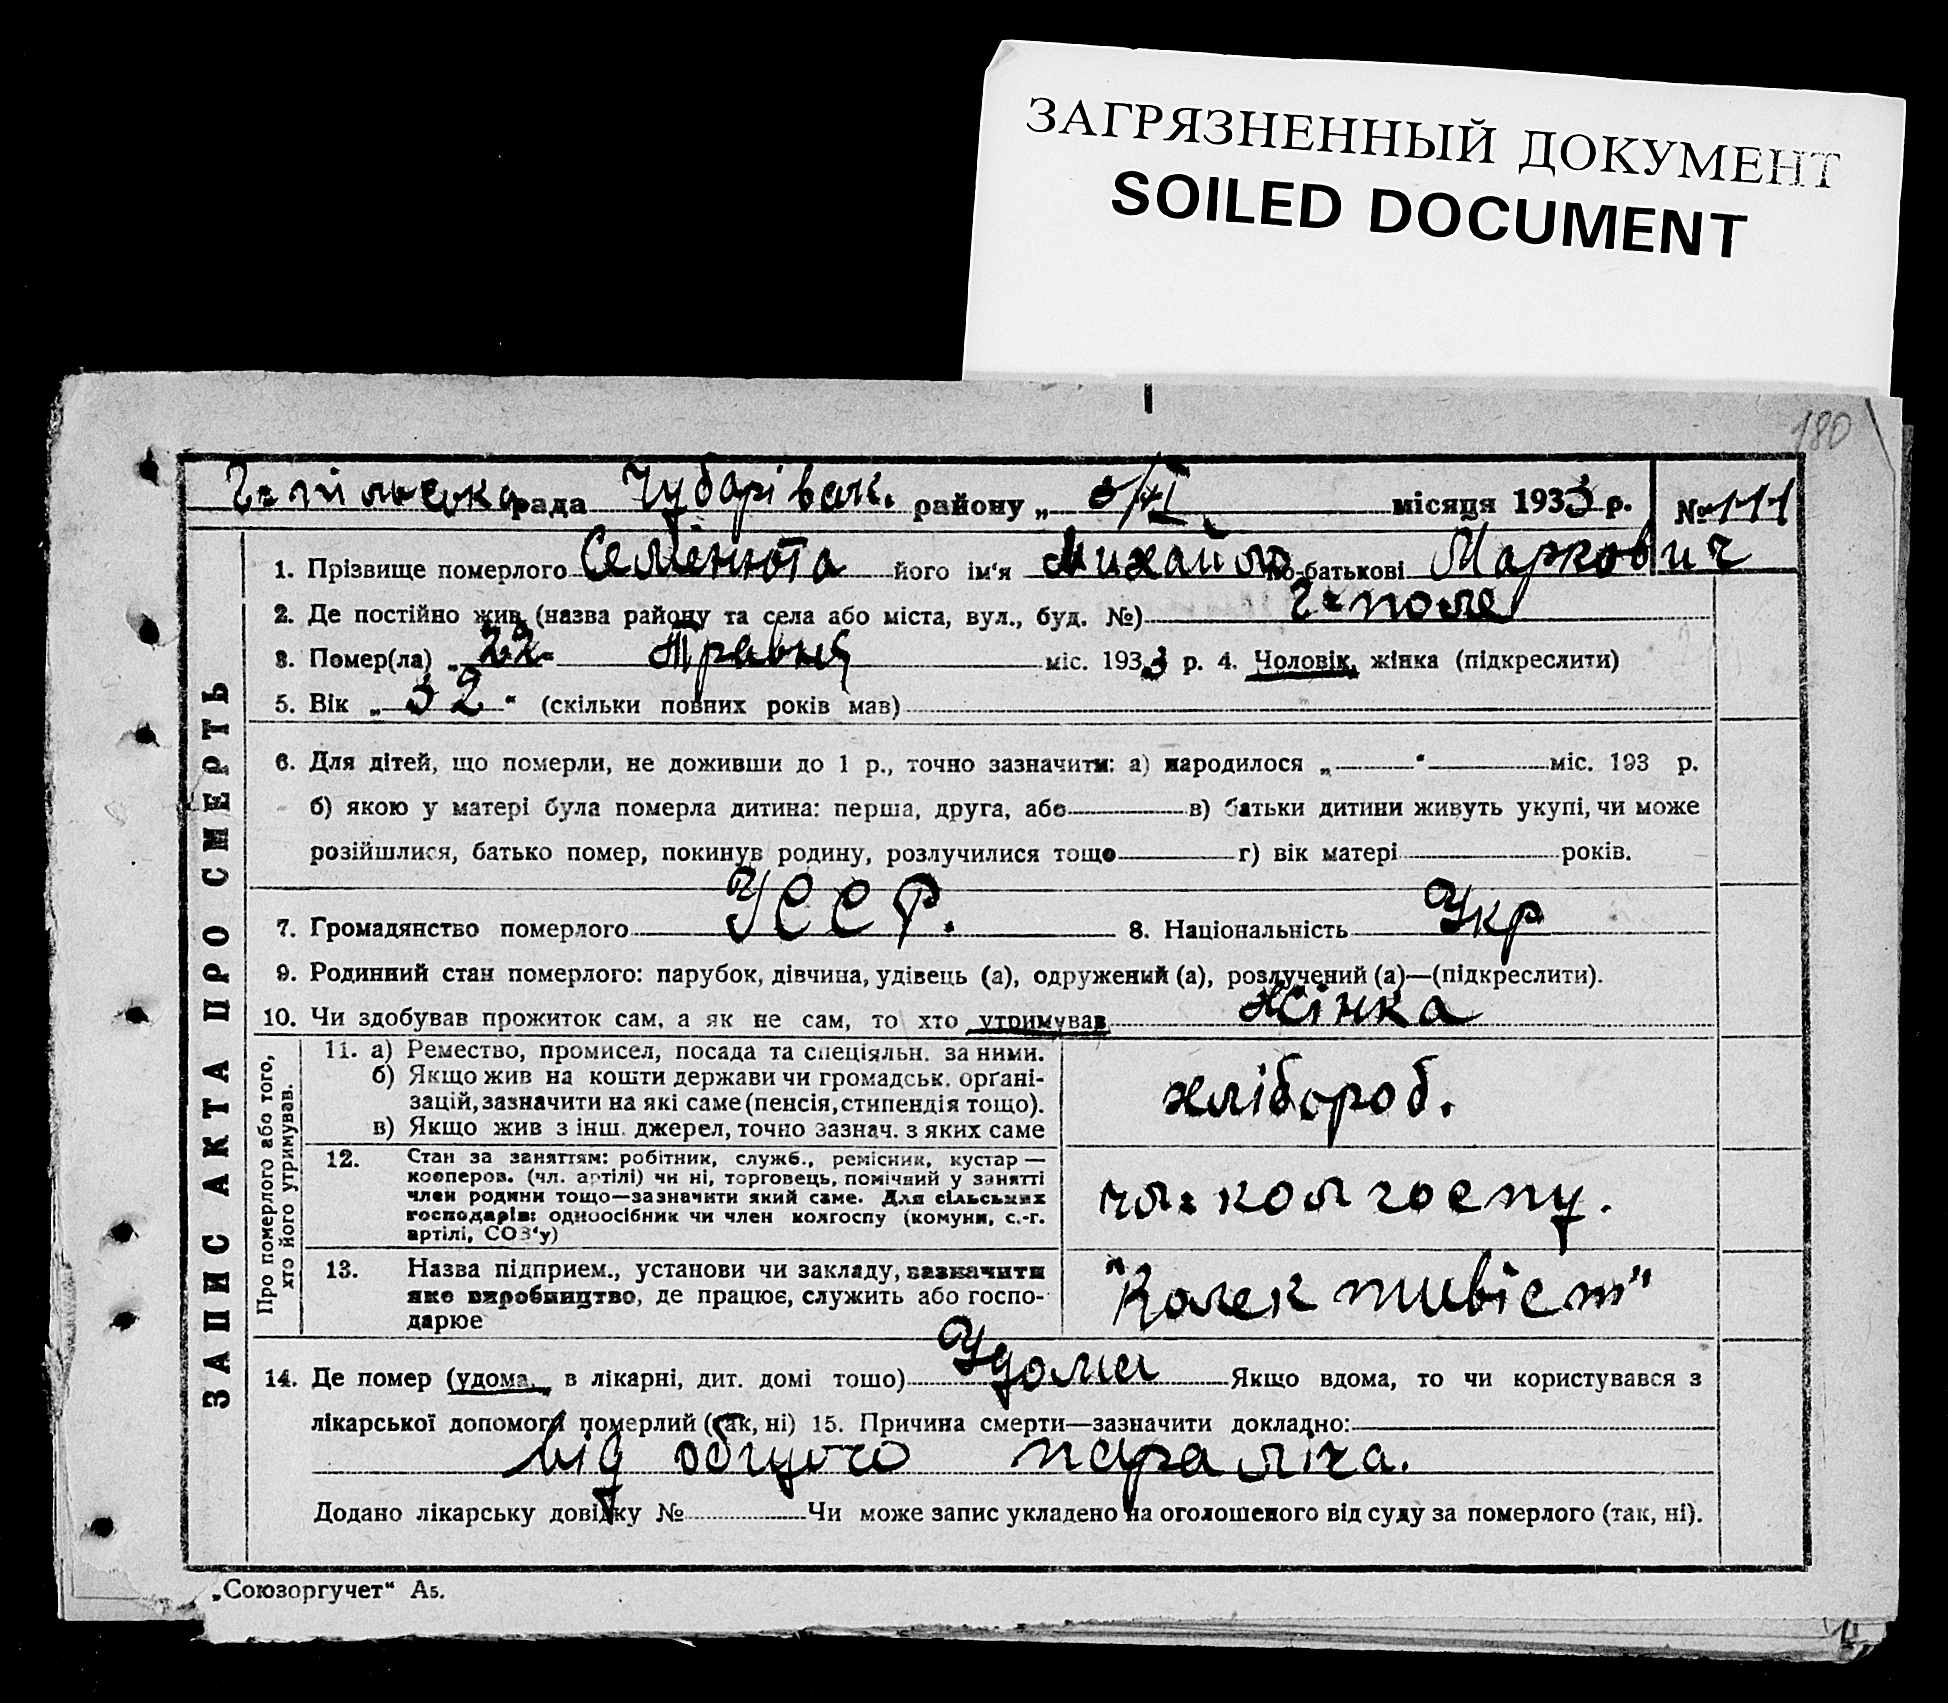 ЗАГРЯЗНЕННЫЙ ДОКУМЕНТ
SOILED DOCUMENT
180
Г-пільська рада Чубарівськ. району „ 5/VI місяця 1933 р. № 111
ЗАПИС АКТА ПРО СМЕРТЬ
1. Прізвище померлого Семенюта його ім'я Михайло по-батькові Маркович
2. Де постійно жив (назва району та села або міста, вул., буд. №) Г-поле
3. Помер(ла) „ 22 Травня міс. 1933 р. 4. Чоловік, жінка (підкреслити)
5. Вік „ 32 “ (скільки повних років мав)
6. Для дітей, що померли, не доживши до 1 р., точно зазначити: а) народилося „ “ міс. 193 р.
б) якою у матері була померла дитина: перша, друга, або в) батьки дитини живуть укупі, чи може
розійшлися, батько помер, покинув родину, розлучилися тощо г) вік матері років.
7. Громадянство померлого УССР. 8. Національність Укр
9. Родинний стан померлого: парубок, дівчина, удівець (а), одружений (а), розлучений (а)—(підкреслити).
10. Чи здобував прожиток сам, а як не сам, то хто утримував Жінка
Про померлого або того,
хто його утримував.
11. а) Ремество, промисел, посада та спеціяльн. за ними.
б) Якщо жив на кошти держави чи громадськ. органі-
зацій, зазначити на які саме (пенсія, стипендія тощо).
в) Якщо жив з інш. джерел, точно зазнач. з яких саме
хлібороб.
12. Стан за заняттям: робітник, служб., ремісник, кустар —
кооперов. (чл. артілі) чи ні, торговець, помічний у занятті
член родини тощо—зазначити який саме. Для сільських
господарів: одноосібник чи член колгоспу (комуни, с.-г.
артілі, СОЗ'у)
чл. колгоспу.
13. Назва підприєм., установи чи закладу, зазначити
яке виробництво, де працює, служить або госпо-
дарює
"Колективіст"
14. Де помер (удома, в лікарні, дит. домі тощо) Удома Якщо вдома, то чи користувався з
лікарської допомоги померлий (так, ні) 15. Причина смерти—зазначити докладно:
від общого параліча.
Додано лікарську довідку № Чи може запис укладено на оголошеного від суду за померлого (так, ні).
„Союзоргучет“ А5.